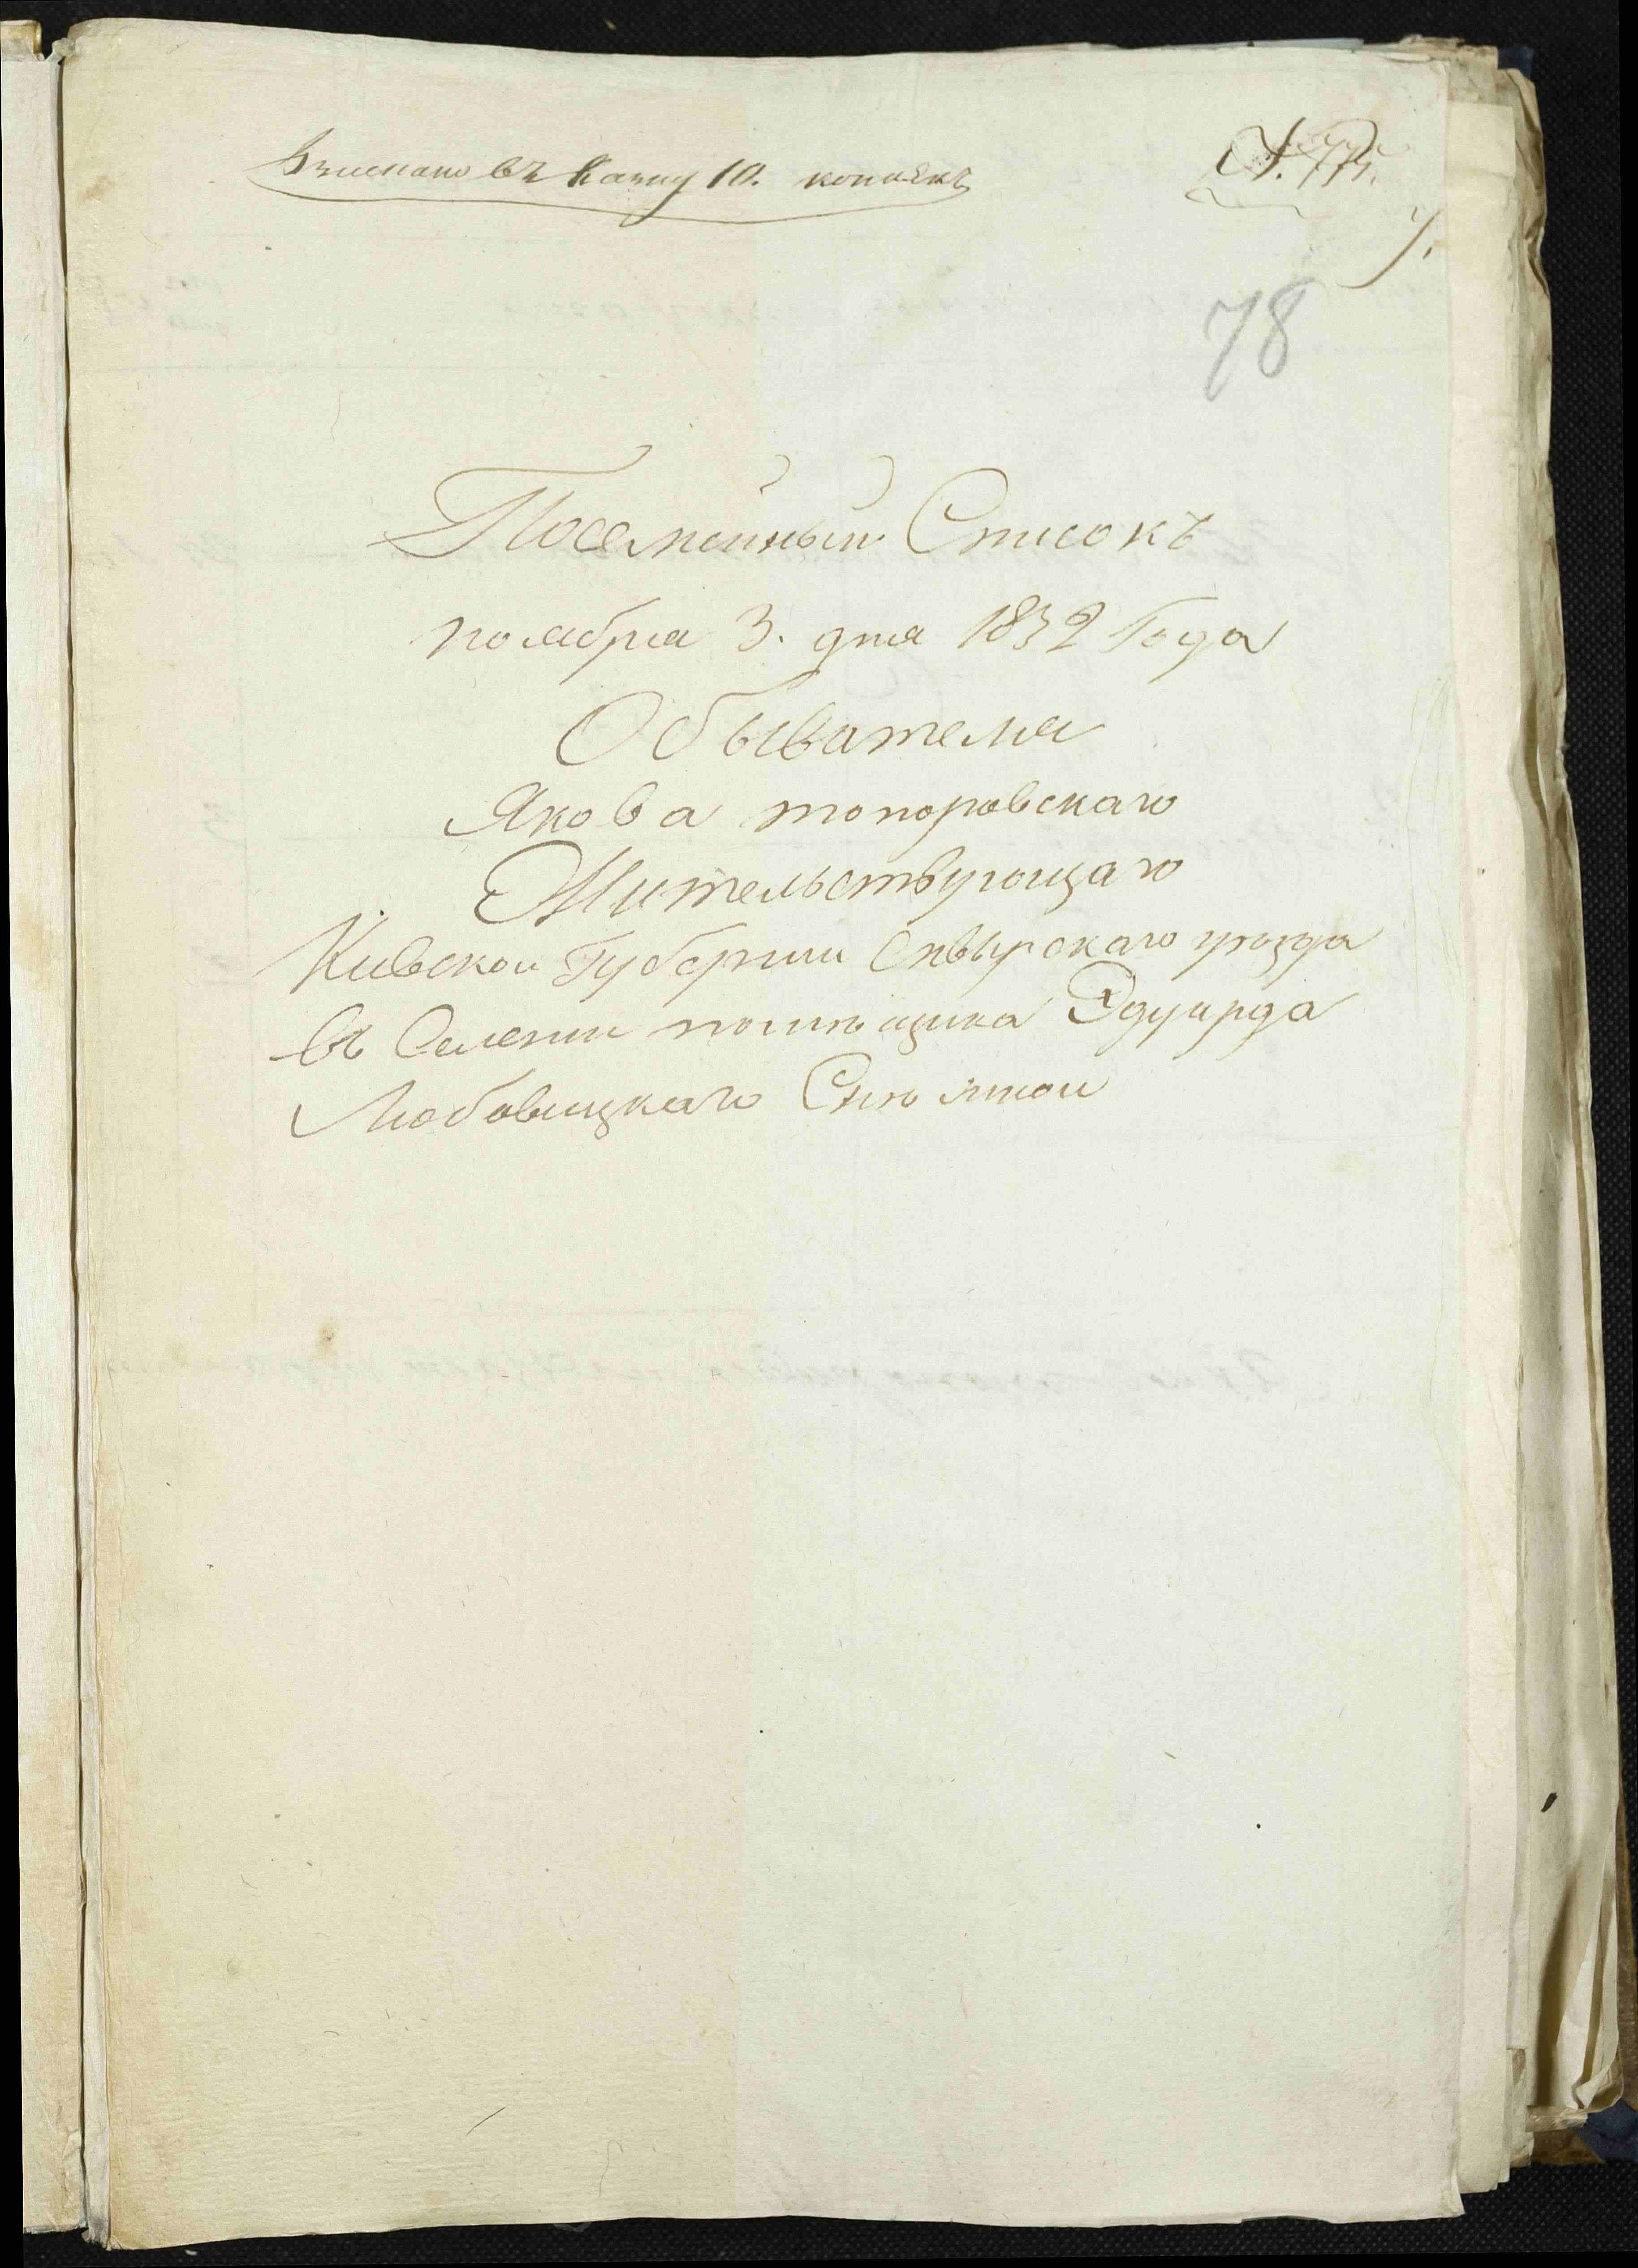 Взыскано въ Казну 10. копѣекъ
78
Посемейный Списокъ
ноября 3. дня 1832 Года
Обывателя
Якова топоровскаго
Жительствующаго
Киевской Губернии Сквырскаго уезда
въ Селении помѣщика Эдуарда
Любовицкаго